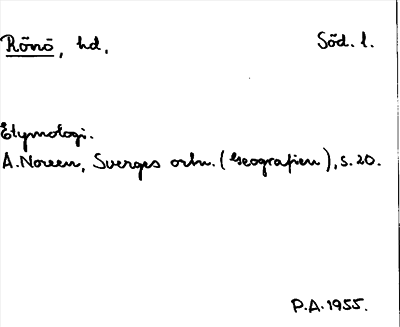 Rönö, hd.
Söd. l.
Etymologi.
A. Noreen, Sverges ortn. (Geografien), s. 20.
P.A. 1955.